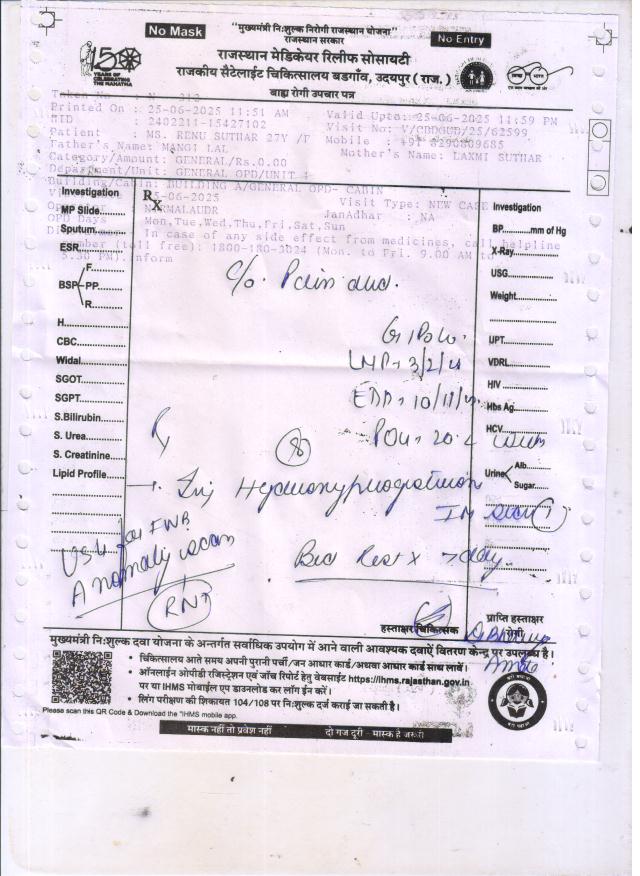 No Mask
"मुख्यमंत्री निःशुल्क निरोगी राजस्थान योजना"
राजस्थान सरकार
No Entry
राजस्थान मेडिकेयर रिलीफ सोसायटी
राजकीय सैटेलाईट चिकित्सालय बड़गाँव, उदयपुर ( राज. )
बाह्य रोगी उपचार पत्र
150
YEARS OF
CELEBRATING
THE MAHATMA
Printed On : 25-06-2025 11:51 AM
Valid Upto: 25-06-2025 11:59 PM
HID : 2402211-15427102
Visit No: V/CBDGUD/25/62599
Patient : MS. RENU SUTHAR 27Y /F
Mobile : +91 8290809685
Father's Name: MANGI LAL
Mother's Name: LAXMI SUTHAR
Category/Amount: GENERAL/Rs.0.00
Department/Unit: GENERAL OPD/UNIT
Building/Cabin: BUILDING A/GENERAL OPD- CABIN
5-06-2025
Visit Type: NEW CASE
NIRMALAUDR
JanAdhar : NA
OPD Days Mon,Tue,Wed,Thu,Fri,Sat,Sun
In case of any side effect from medicines, call helpline
(toll free): 1800-180-3024 (Mon. to Fri. 9.00 AM to
5.30 PM). inform
Investigation
MP Slide
Sputum
ESR
BSP F.
PP
R
H
CBC
Widal
SGOT
SGPT
S.Bilirubin
S. Urea
S. Creatinine
Lipid Profile
Rx
c/o. Pain abd.
G1P0L0.
LMP- 3/2/
EDD- 10/11/
POG- 20.2 weeks
Rx
Inj Hydroxyprogesteron
IM stat
Bed Rest x 7 day
USG for FWB
Anomaly scan
RNT
Investigation
BP mm of Hg
X-Ray
USG
Weight
UPT
VDRL
HIV
Hbs Ag
HCV
Urine Alb.
Sugar
हस्ताक्षर चिकित्सक
प्राप्ति हस्ताक्षर
रोगी
मुख्यमंत्री निःशुल्क दवा योजना के अन्तर्गत सर्वाधिक उपयोग में आने वाली आवश्यक दवाऐं वितरण केन्द्र पर उपलब्ध है।
• चिकित्सालय आते समय अपनी पुरानी पर्ची/जन आधार कार्ड/अथवा आधार कार्ड साथ लावें।
• ऑनलाईन ओपीडी रजिस्ट्रेशन एवं जाँच रिपोर्ट हेतु वेबसाईट https://ihms.rajasthan.gov.in
पर या IHMS मोबाईल एप डाउनलोड कर लॉग ईन करें।
• लिंग परीक्षण की शिकायत 104/108 पर निःशुल्क दर्ज कराई जा सकती है।
Please scan this QR Code & Download the "IHMS mobile app.
मास्क नहीं तो प्रवेश नहीं
दो गज दूरी - मास्क है जरूरी